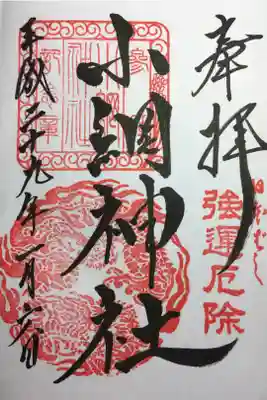 奉拝
強運厄除
小網神社
平成二十九年一月六日